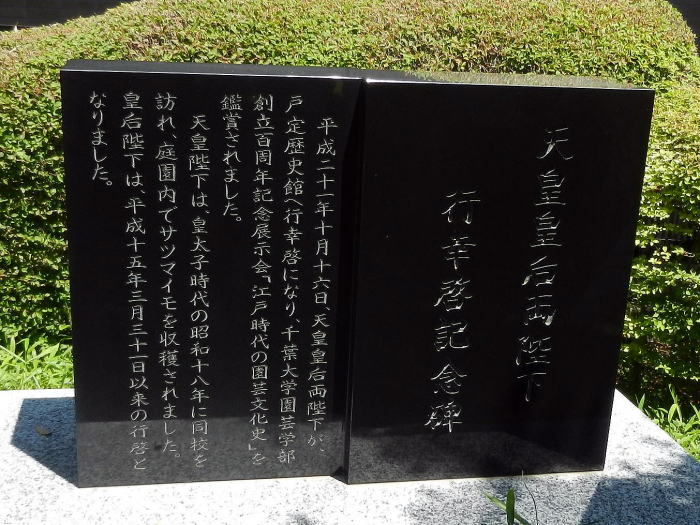 天皇皇后両陛下
行幸啓記念碑
平成二十一年十月十六日、天皇皇后両陛下が、
戸定歴史館へ行幸啓になり、千葉大学園芸学部
創立百周年記念展示会「江戸時代の園芸文化史」を
鑑賞されました。
天皇陛下は、皇太子時代の昭和十八年に同校を
訪れ、庭園内でサツマイモを収穫されました。
皇后陛下は、平成十五年三月三十一日以来の行啓と
なりました。